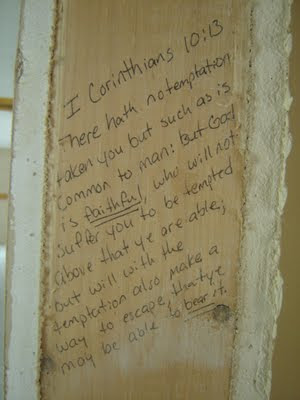 I Corinthians 10:13
There hath no temptation
taken you but such as is
common to man: But God
is faithful, who will not
suffer you to be tempted
above that ye are able;
but will with the
temptation also make a
way to escape, that ye
may be able to bear it.